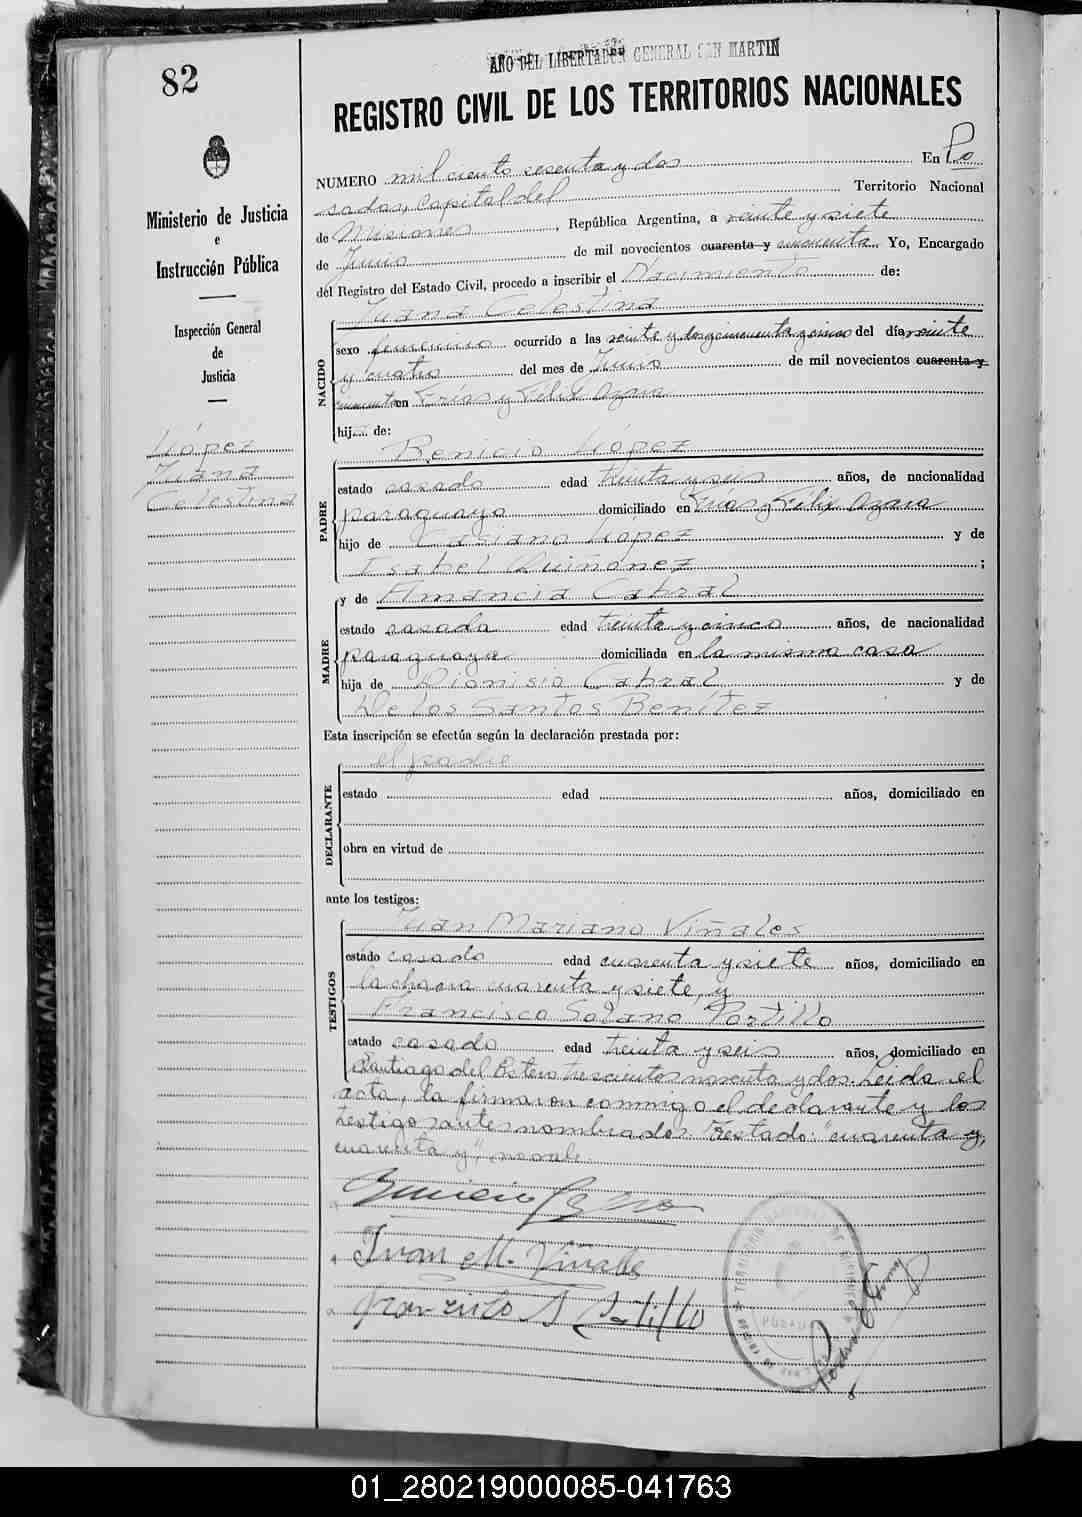 82
AÑO DEL LIBERTADOR GENERAL SAN MARTIN
REGISTRO CIVIL DE LOS TERRITORIOS NACIONALES
Ministerio de Justicia
e
Instrucción Pública
Inspección General
de
Justicia
López
Juana
Celestina
NUMERO mil ciento sesenta y dos En Po
sadas, Capital del Territorio Nacional
de Misiones, República Argentina, a veinte y siete
de Junio de mil novecientos cuarenta y cincuenta. Yo, Encargado
del Registro del Estado Civil, procedo a inscribir el Nacimiento de:
Juana Celestina
NACIDO
sexo femenino ocurrido a las veinte y dos y cincuenta y cinco del día veinte
y cuatro del mes de Junio de mil novecientos cuarenta y
cincuenta en Frías y Félix Azara
hij.... de:
Benicio López
PADRE
estado casado edad treinta y seis años, de nacionalidad
paraguaya domiciliado en Frías y Félix Azara
hijo de Casiano López y de
Isabel Quiñonez ;
y de Amancia Cabral
MADRE
estado casada edad treinta y cinco años, de nacionalidad
paraguaya domiciliada en la misma casa
hija de Dionisio Cabral y de
De los Santos Benítez
Esta inscripción se efectúa según la declaración prestada por:
el padre
DECLARANTE
estado edad años, domiciliado en
obra en virtud de
ante los testigos:
Juan Mariano Viñales
TESTIGOS
estado casado edad cuarenta y siete años, domiciliado en
la chacra cuarenta y siete, y
Francisco Solano Portillo
estado casado edad treinta y seis años, domiciliado en
Santiago del Estero trescientos noventa y dos. Leída el
acta, la firmaron conmigo el declarante y los
testigos antes nombrados. Testado: "cuarenta y,
cuarenta y, no vale.
Juan M. Viñales
Francisco S Portillo
01_280219000085-041763